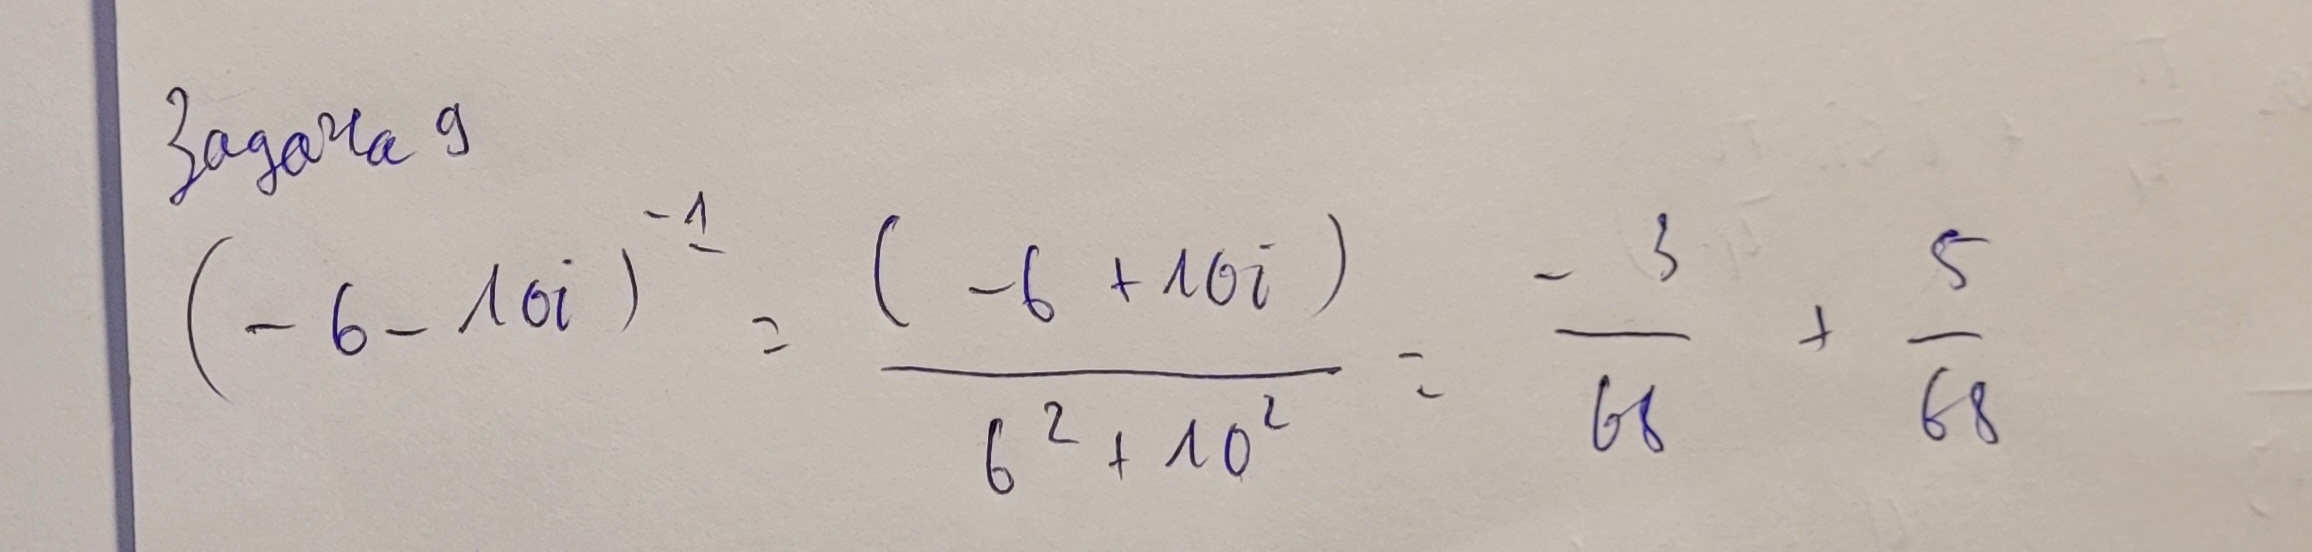 Задача 9
(-6-10i)^-1 = (-6+10i) / (6^2+10^2) = -3/68 + 5/68